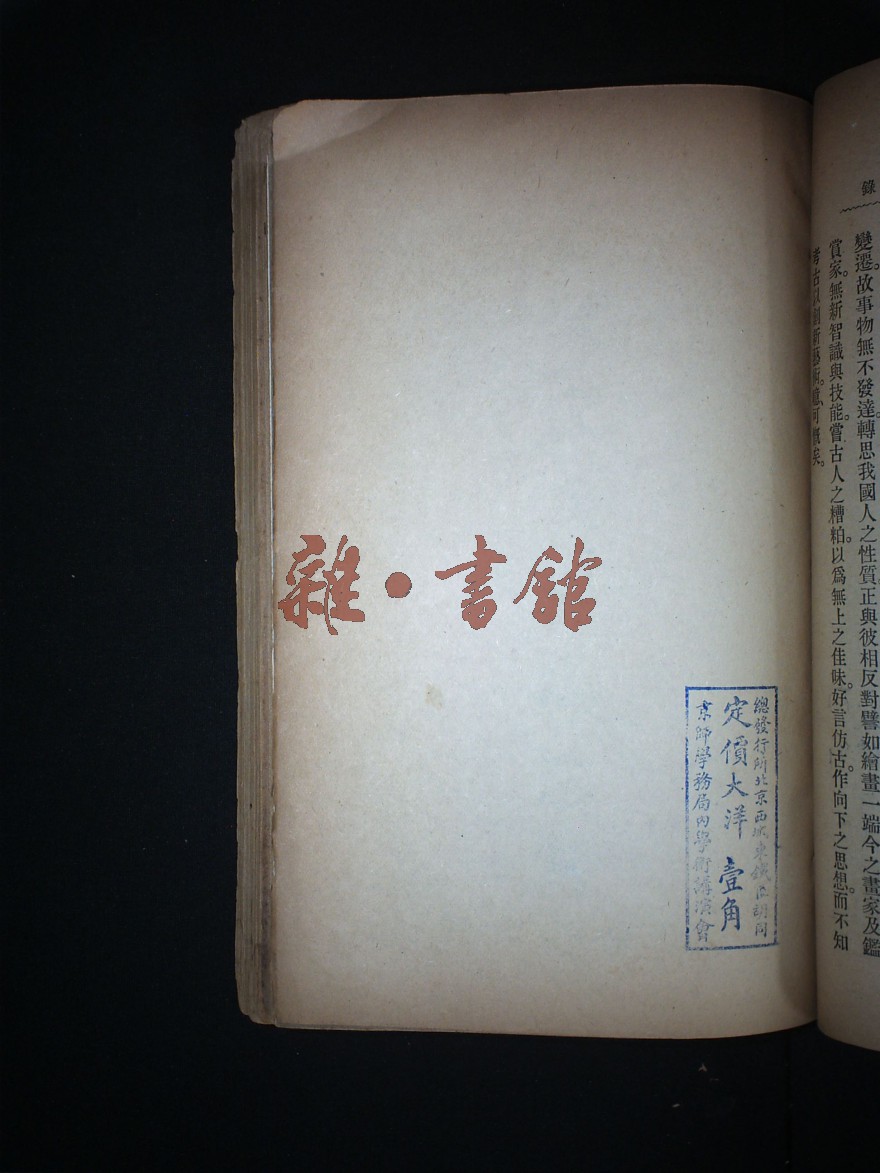 錄
變遷。故事物無不發達。轉思我國人之性質。正與彼相反對。譬如繪畫一端。今之畫家及鑑
賞家。無新智識與技能。嘗古人之糟粕。以爲無上之佳味。好言仿古。作向下之思想。而不知
考古以創新藝術。噫。可慨矣。
雜•書館
總發行所北京西城東鐵匠胡同
定價大洋壹角
京師學務局內學術講演會